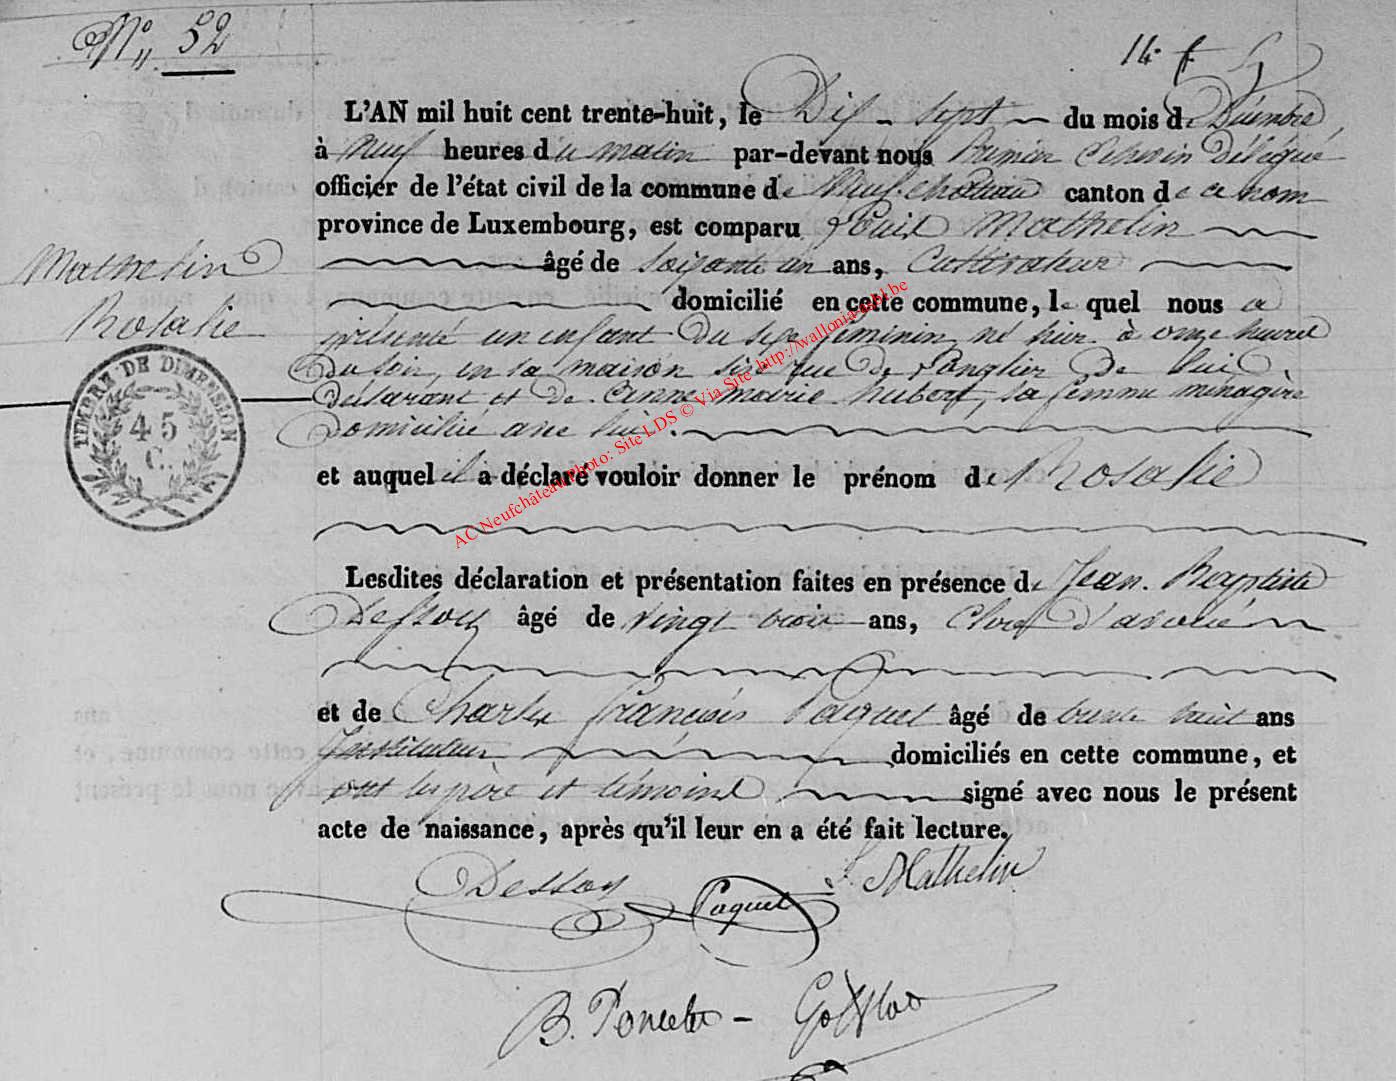 N° 52
14e f
L'AN mil huit cent trente-huit, le Dix-sept du mois de Décembre,
à neuf heures du matin par-devant nous Premier Echevin délégué
officier de l'état civil de la commune de Neufchateau canton de ce nom
province de Luxembourg, est comparu Louis Mathelin
Mathelin
Rosalie
âgé de soixante un ans, Cultivateur
domicilié en cette commune, le quel nous a
présenté un enfant du sexe féminin, né hier à onze heures
du soir, en sa maison sise rue de Longlier de lui
déclarant et de Anne marie hubert, sa femme ménagère
domiciliée avec lui.
TIMBRE DE DIMENSION
45
C.
et auquel il a déclaré vouloir donner le prénom de Rosalie
AC Neufchâteau Photo: Site LDS © Via Site http://wallonia-asbl.be
Lesdites déclaration et présentation faites en présence de Jean Baptiste
Dessoy âgé de vingt trois ans, Clerc d'avoué
et de Charles françois Paquet âgé de trente huit ans
Instituteur domiciliés en cette commune, et
ont les père et témoins signé avec nous le présent
acte de naissance, après qu'il leur en a été fait lecture.
Dessoy Paquet L. Mathelin
B. Poncelet -